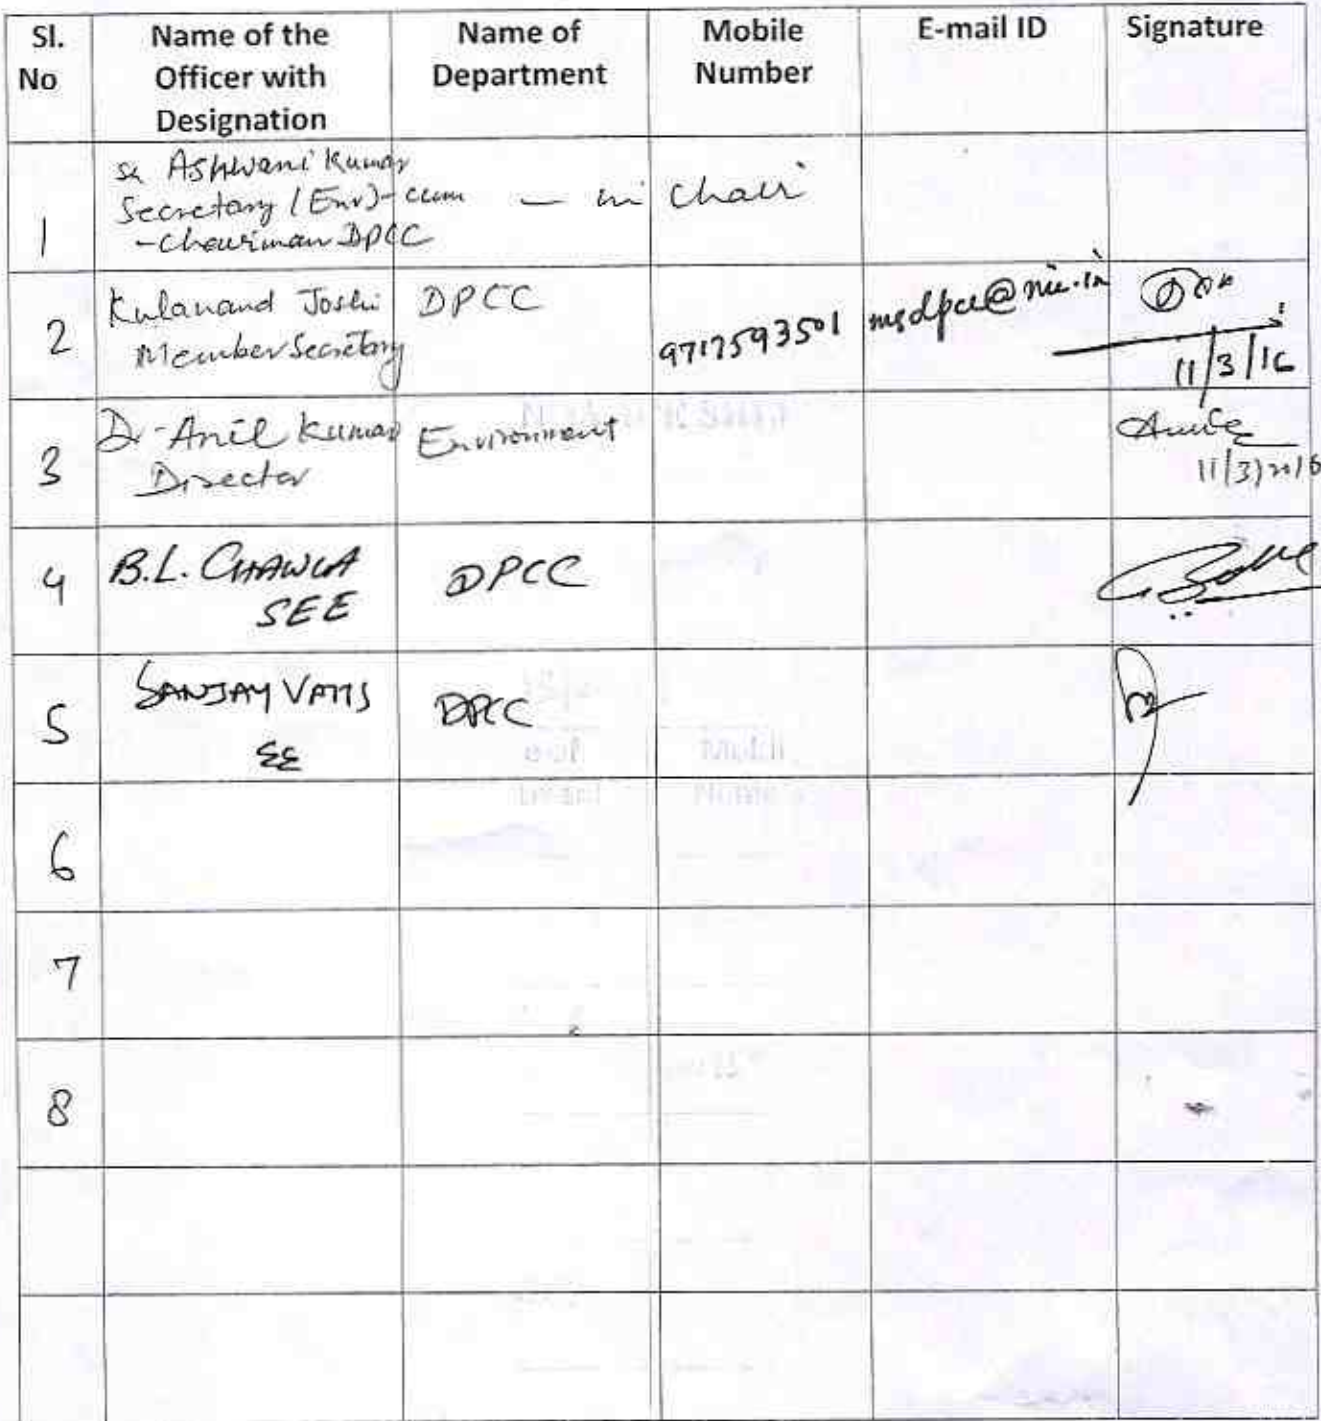 Sl. No
Name of the Officer with Designation
Name of Department
Mobile Number
E-mail ID
Signature
1
Sh Ashwani Kumar
Secretary (Env)-cum
-Chairman DPCC
— in Chair
2
Kulanand Joshi
Member Secretary
DPCC
9717593501
msdpcc@nic.in
11/3/16
3
Dr. Anil Kumar
Director
Environment
11/3/2016
4
B.L. CHAWLA
SEE
DPCC
5
SANJAY VATTS
EE
DPCC
6
7
8